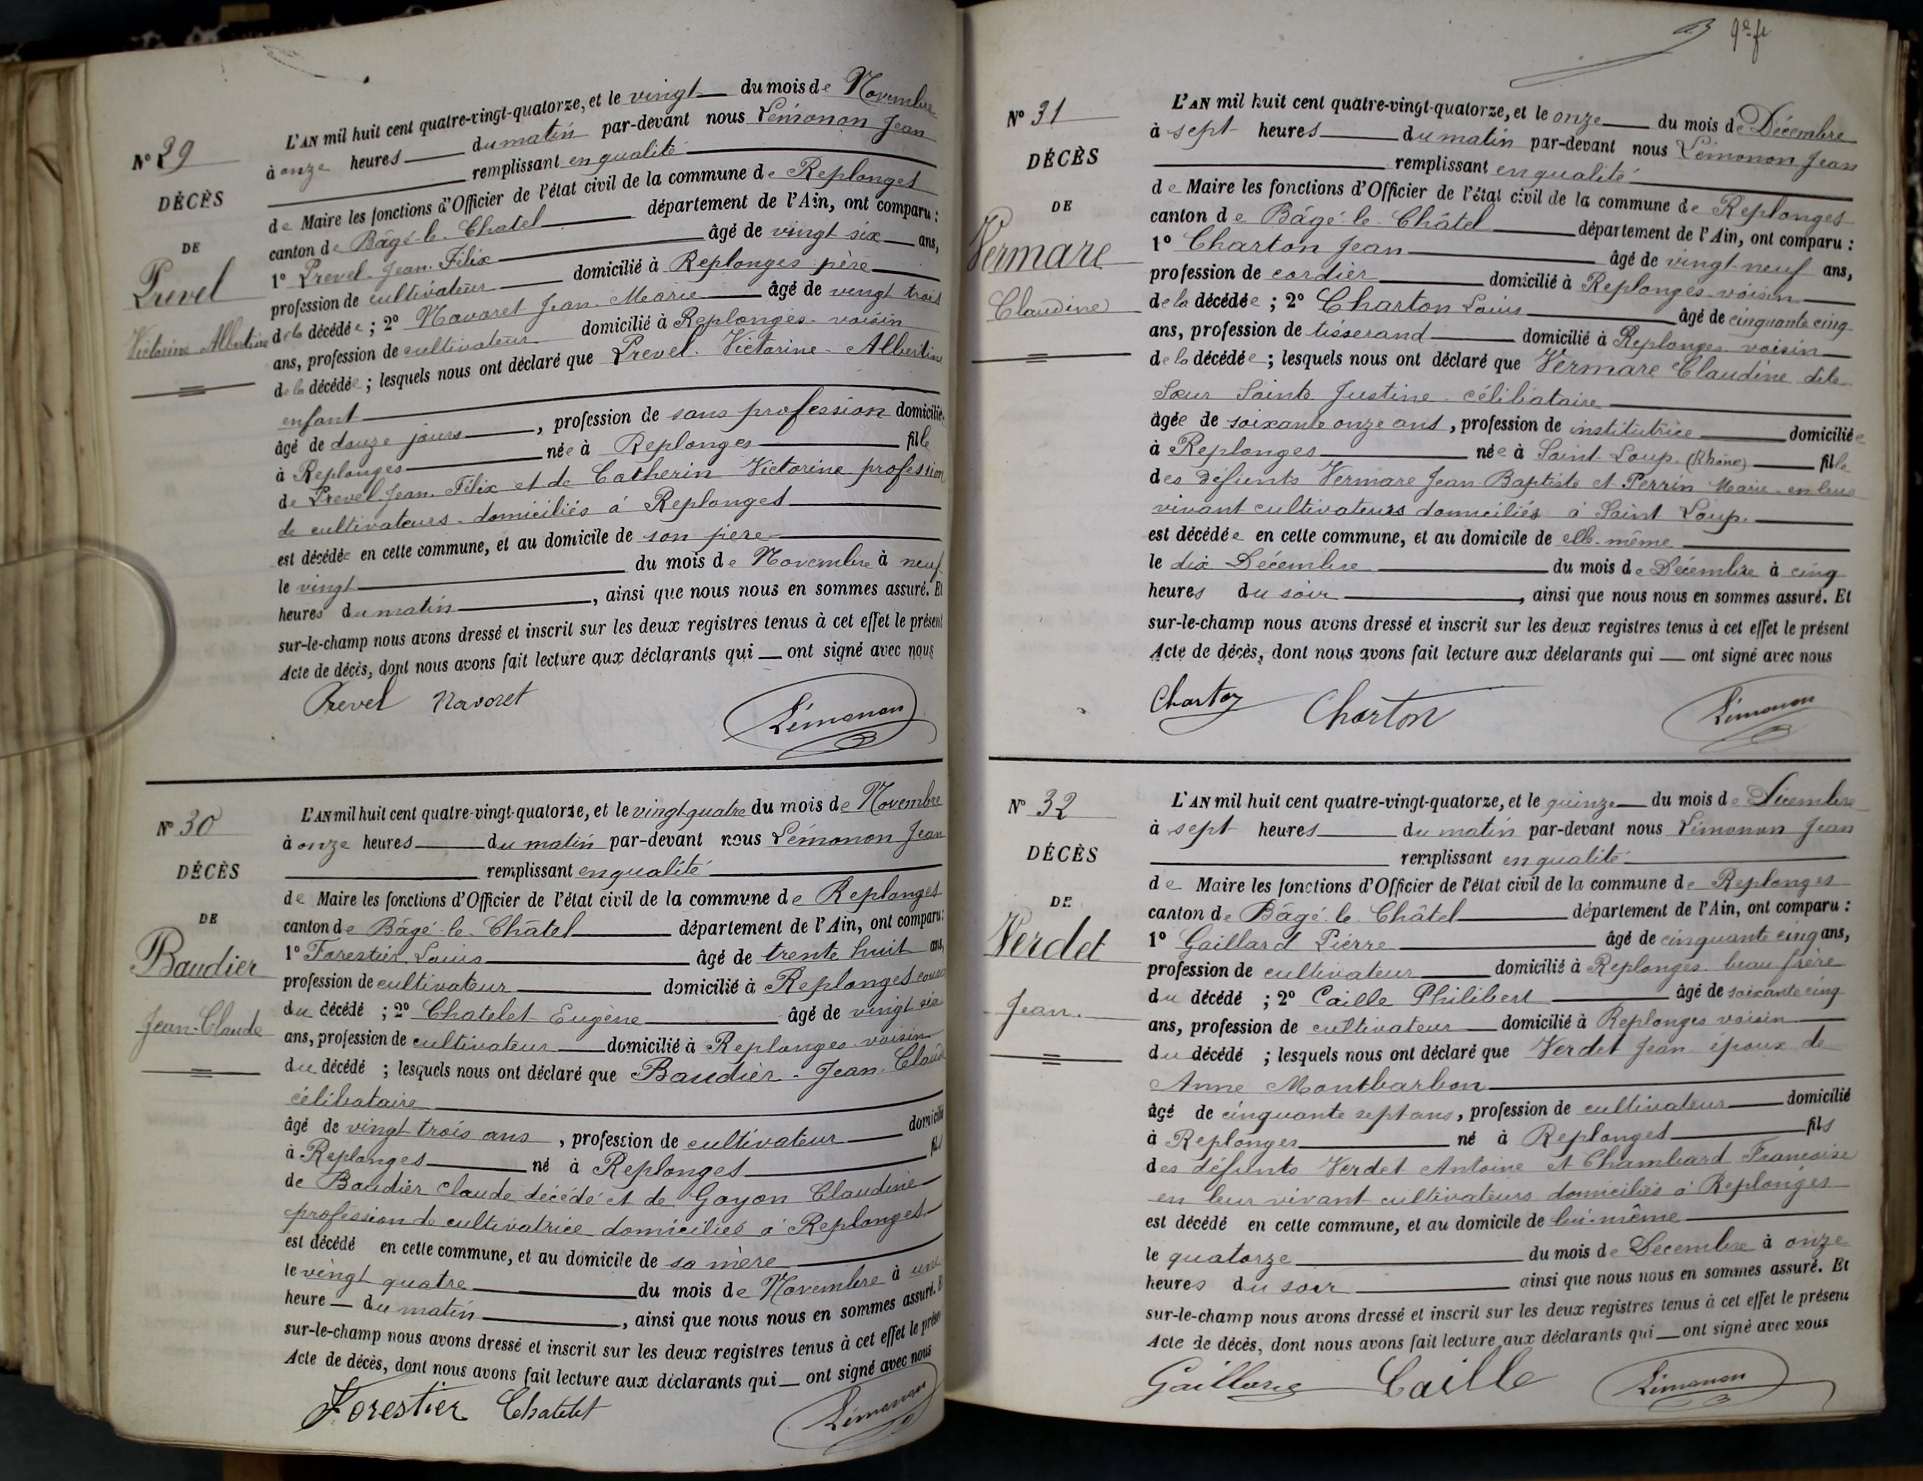 N° 29
DÉCÈS
DE
Prevel
Victorine Albertine
L'AN mil huit cent quatre-vingt-quatorze, et le vingt du mois de Novembre
à onze heures du matin par-devant nous Lémonon Jean
remplissant en qualité
de Maire les fonctions d'Officier de l'état civil de la commune de Replonges
canton de Bâgé-le-Chatel département de l'Ain, ont comparu :
1° Prevel Jean Félix âgé de vingt six ans,
profession de cultivateur domicilié à Replonges père
de la décédée ; 2° Navoret Jean-Marie âgé de vingt trois
ans, profession de cultivateur domicilié à Replonges voisin
de la décédée ; lesquels nous ont déclaré que Prevel Victorine Albertine
enfant
âgé de douze jours, profession de sans profession domicilié
à Replonges née à Replonges fille
de Prevel Jean Félix et de Catherin Victorine profession
de cultivateurs domiciliés à Replonges
est décédée en cette commune, et au domicile de son père
le vingt du mois de Novembre à neuf
heures du matin, ainsi que nous nous en sommes assuré. Et
sur-le-champ nous avons dressé et inscrit sur les deux registres tenus à cet effet le présent
Acte de décès, dont nous avons fait lecture aux déclarants qui ont signé avec nous
Prevel Navoret Lémonon
N° 30
DÉCÈS
DE
Baudier
Jean-Claude
L'AN mil huit cent quatre-vingt-quatorze, et le vingt-quatre du mois de Novembre
à onze heures du matin par-devant nous Lémonon Jean
remplissant en qualité
de Maire les fonctions d'Officier de l'état civil de la commune de Replonges
canton de Bâgé-le-Châtel département de l'Ain, ont comparu :
1° Forestier Louis âgé de trente huit ans,
profession de cultivateur domicilié à Replonges
du décédé ; 2° Chatelet Eugène âgé de vingt six
ans, profession de cultivateur domicilié à Replonges voisin
du décédé ; lesquels nous ont déclaré que Baudier Jean-Claude
célibataire
âgé de vingt trois ans, profession de cultivateur domicilié
à Replonges né à Replonges fils
de Baudier Claude décédé et de Goyon Claudine
profession de cultivatrice domiciliés à Replonges
est décédé en cette commune, et au domicile de sa mère
le vingt quatre du mois de Novembre à une
heure du matin, ainsi que nous nous en sommes assuré. Et
sur-le-champ nous avons dressé et inscrit sur les deux registres tenus à cet effet le présent
Acte de décès, dont nous avons fait lecture aux déclarants qui ont signé avec nous
Forestier Chatelet Lémonon
N° 31
DÉCÈS
DE
Vermare
Claudine
L'AN mil huit cent quatre-vingt-quatorze, et le onze du mois de Décembre
à sept heures du matin par-devant nous Lémonon Jean
remplissant en qualité
de Maire les fonctions d'Officier de l'état civil de la commune de Replonges
canton de Bâgé-le-Châtel département de l'Ain, ont comparu :
1° Charton Jean âgé de vingt-neuf ans,
profession de cordier domicilié à Replonges voisin
de la décédée ; 2° Charton Louis âgé de cinquante cinq
ans, profession de tisserand domicilié à Replonges voisin
de la décédée ; lesquels nous ont déclaré que Vermare Claudine dite
Sœur Sainte Justine célibataire
âgée de soixante onze ans, profession de institutrice domiciliée
à Replonges née à Saint Loup (Rhône) fille
des défunts Vermare Jean Baptiste et Perrin Marie en leur
vivant cultivateurs domiciliés à Saint Loup
est décédée en cette commune, et au domicile de elle-même
le dix Décembre du mois de Décembre à cinq
heures du soir, ainsi que nous nous en sommes assuré. Et
sur-le-champ nous avons dressé et inscrit sur les deux registres tenus à cet effet le présent
Acte de décès, dont nous avons fait lecture aux déclarants qui ont signé avec nous
Charton Charton Lémonon
N° 32
DÉCÈS
DE
Verdet
Jean
L'AN mil huit cent quatre-vingt-quatorze, et le quinze du mois de Décembre
à sept heures du matin par-devant nous Lémonon Jean
remplissant en qualité
de Maire les fonctions d'Officier de l'état civil de la commune de Replonges
canton de Bâgé-le-Châtel département de l'Ain, ont comparu :
1° Gaillard Pierre âgé de cinquante cinq ans,
profession de cultivateur domicilié à Replonges beau frère
du décédé ; 2° Caille Philibert âgé de soixante cinq
ans, profession de cultivateur domicilié à Replonges voisin
du décédé ; lesquels nous ont déclaré que Verdet Jean époux de
Anne Montbarbon
âgé de cinquante sept ans, profession de cultivateur domicilié
à Replonges né à Replonges fils
des défunts Verdet Antoine et Chambard Françoise
en leur vivant cultivateurs domiciliés à Replonges
est décédé en cette commune, et au domicile de lui-même
le quatorze du mois de Décembre à onze
heures du soir ainsi que nous nous en sommes assuré. Et
sur-le-champ nous avons dressé et inscrit sur les deux registres tenus à cet effet le présent
Acte de décès, dont nous avons fait lecture aux déclarants qui ont signé avec nous
Gaillard Caille Lémonon